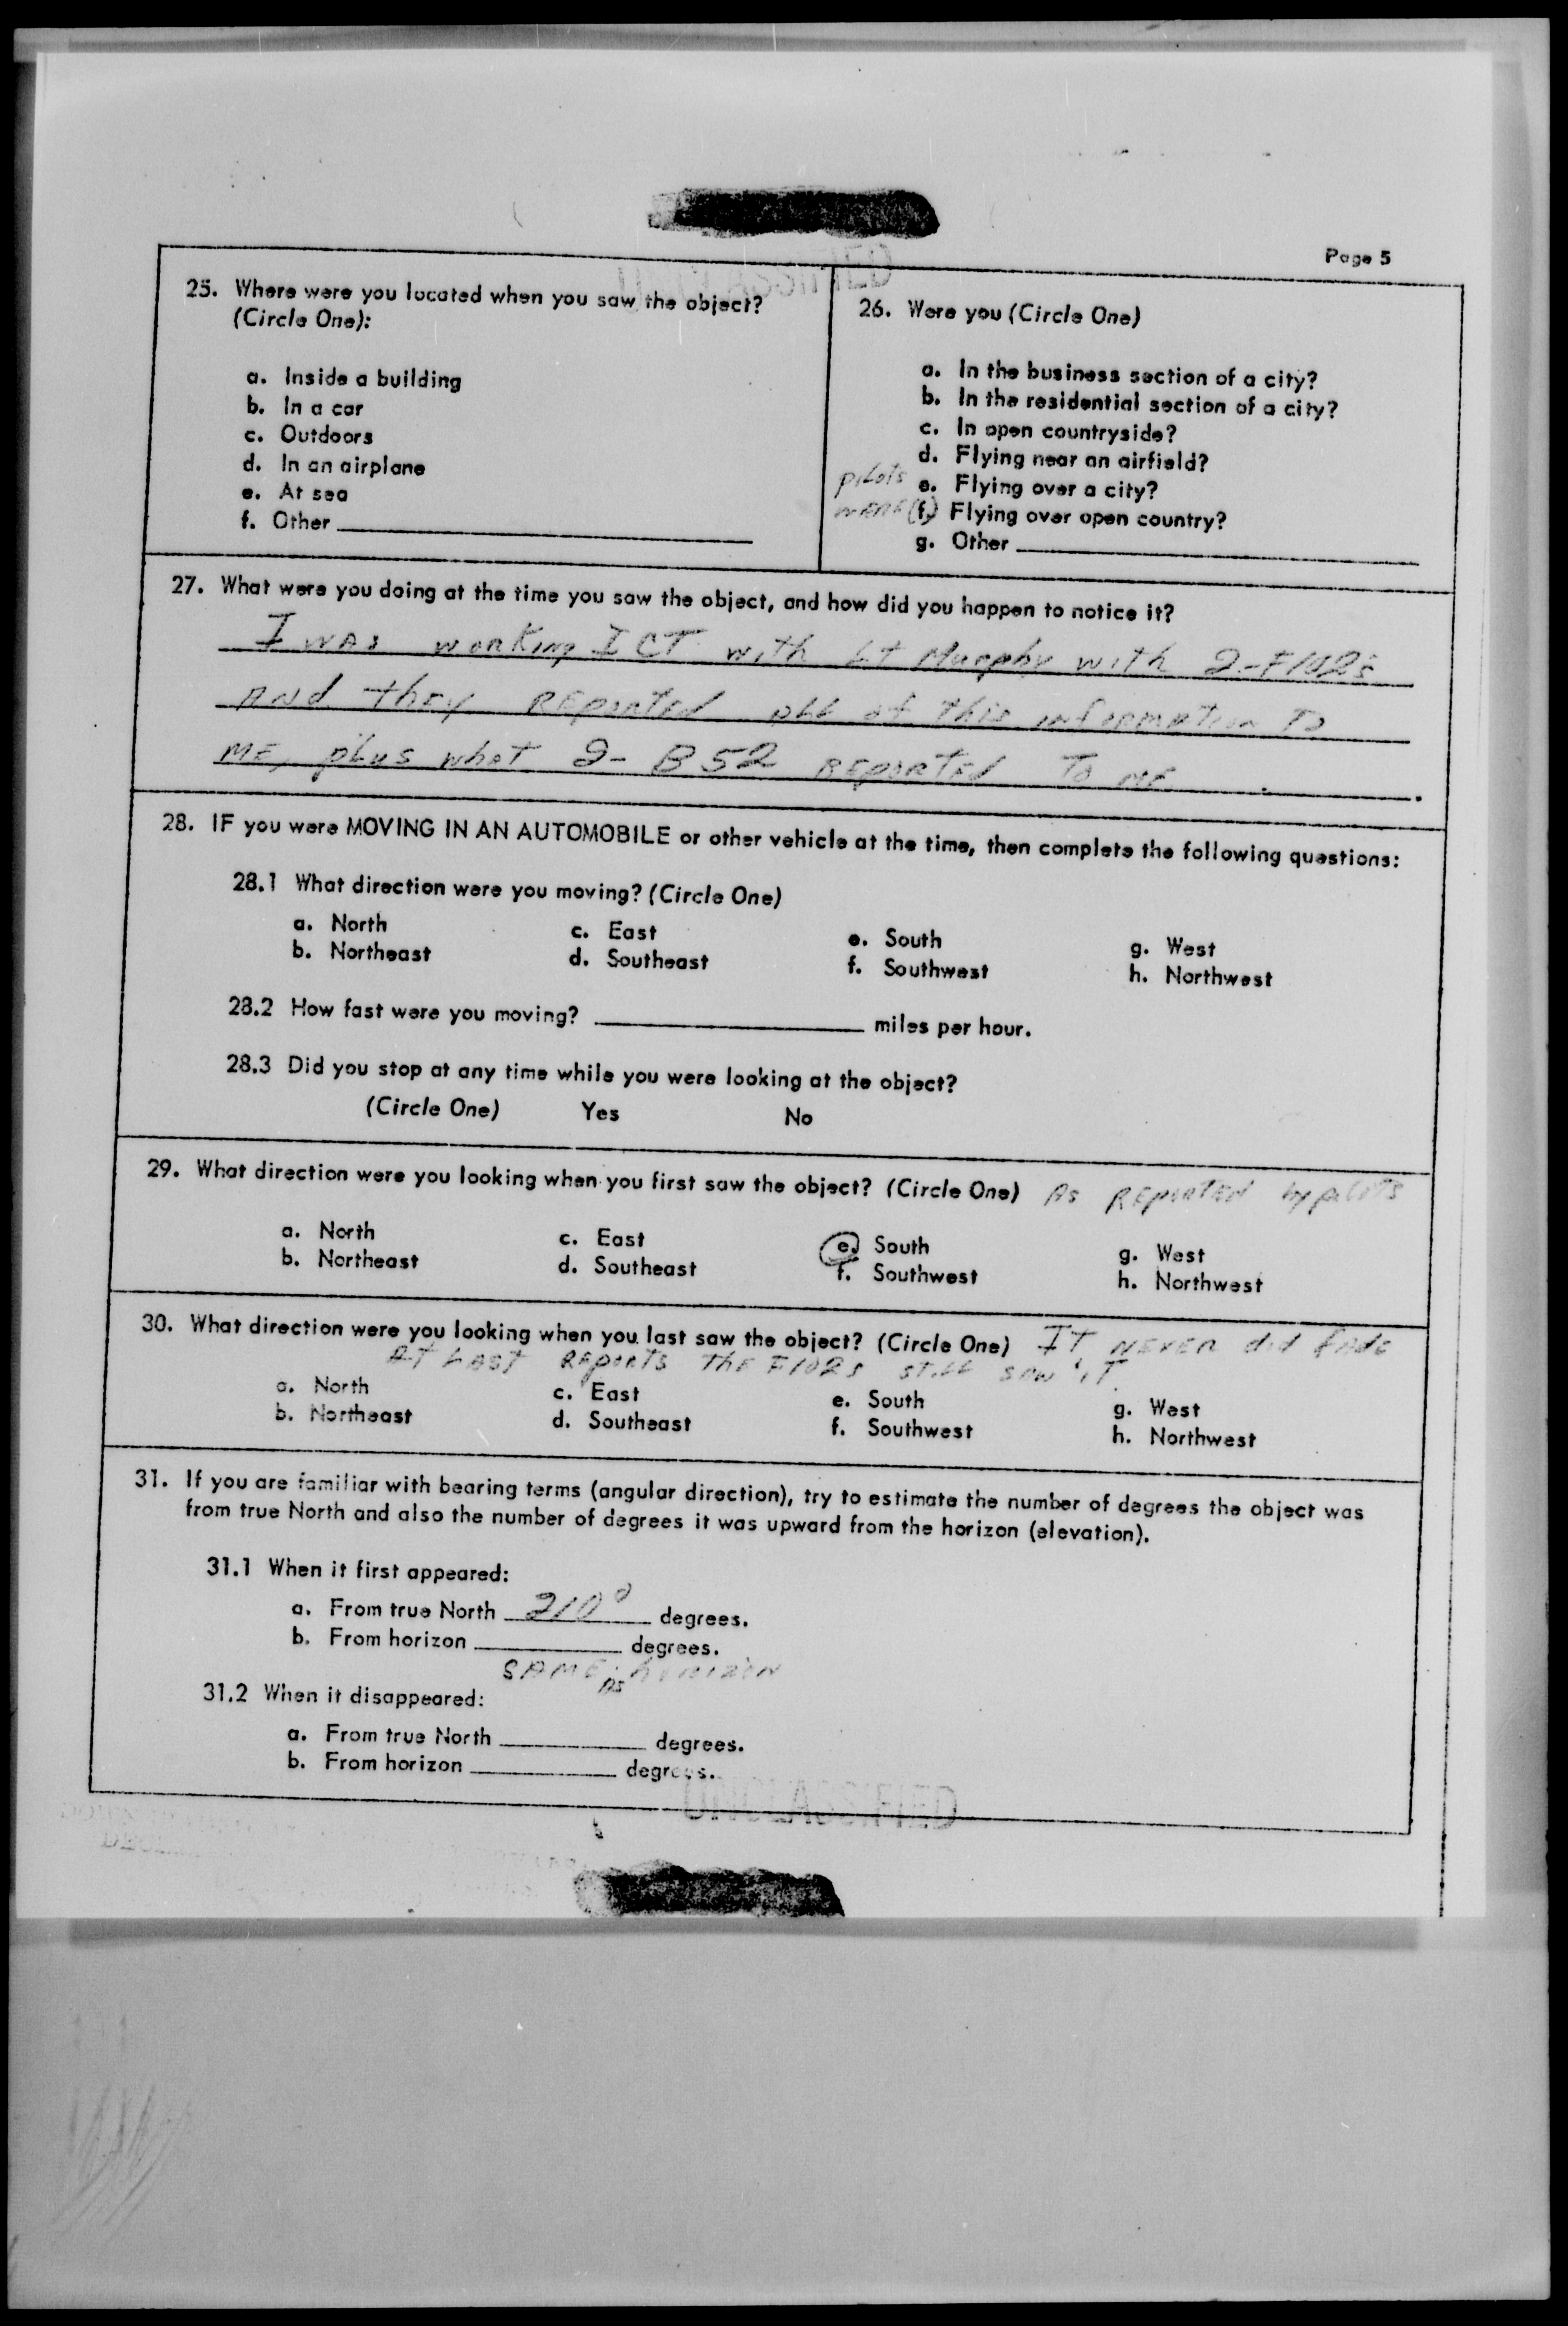 Page 5
25. Where were you located when you saw the object?
(Circle One):
a. Inside a building
b. In a car
c. Outdoors
d. In an airplane
e. At sea
f. Other
26. Were you (Circle One)
a. In the business section of a city?
b. In the residential section of a city?
c. In open countryside?
d. Flying near an airfield?
pilots e. Flying over a city?
WERE (f.) Flying over open country?
g. Other
27. What were you doing at the time you saw the object, and how did you happen to notice it?
I WAS working ICT with Lt Murphy with 2-F102's
And they REPORTED ALL of this information To
ME, plus what 2- B52 REPORTED To ME.
28. IF you were MOVING IN AN AUTOMOBILE or other vehicle at the time, then complete the following questions:
28.1 What direction were you moving? (Circle One)
a. North c. East e. South g. West
b. Northeast d. Southeast f. Southwest h. Northwest
28.2 How fast were you moving? miles per hour.
28.3 Did you stop at any time while you were looking at the object?
(Circle One) Yes No
29. What direction were you looking when you first saw the object? (Circle One) As REPORTED by pilots
a. North c. East e. South g. West
b. Northeast d. Southeast f. Southwest h. Northwest
30. What direction were you looking when you last saw the object? (Circle One) IT NEVER did fade
AT LAST REPORTS THE F102s STILL SAW IT
a. North c. East e. South g. West
b. Northeast d. Southeast f. Southwest h. Northwest
31. If you are familiar with bearing terms (angular direction), try to estimate the number of degrees the object was
from true North and also the number of degrees it was upward from the horizon (elevation).
31.1 When it first appeared:
a. From true North 210° degrees.
b. From horizon degrees.
SAME AS HORIZON
31.2 When it disappeared:
a. From true North degrees.
b. From horizon degrees.
UNCLASSIFIED